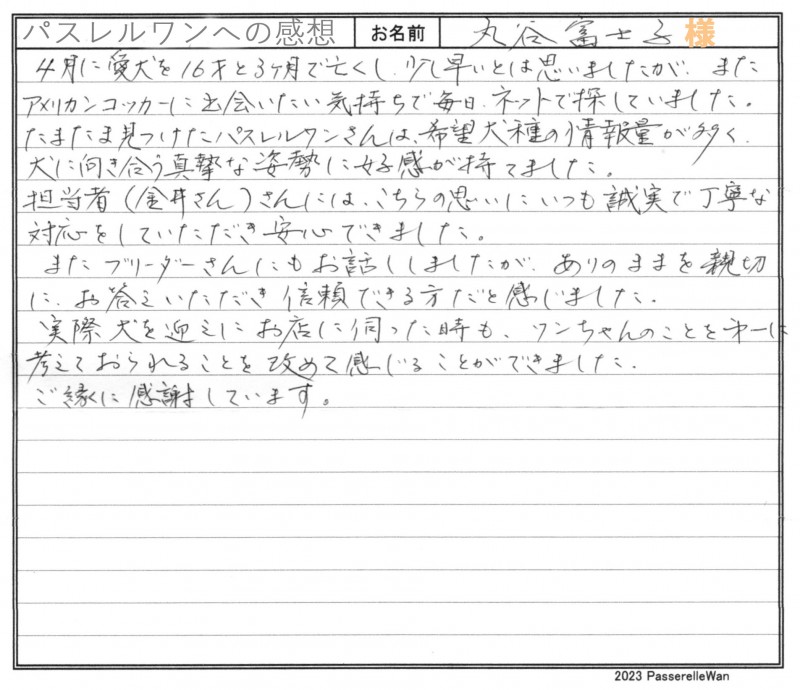 パスレルワンへの感想 お名前 丸谷富士子様
4月に愛犬を16才と3ヶ月で亡くし、少し早いとは思いましたが、また
アメリカンコッカーに出会いたい気持ちで毎日、ネットで探していました。
たまたま見つけたパスレルワンさんは、希望犬種の情報量が多く、
犬に向き合う真摯な姿勢に好感が持てました。
担当者(金井さん)さんには、こちらの思いにいつも誠実で丁寧な
対応をしていただき安心できました。
またブリーダーさんにもお話ししましたが、ありのままを親切
に、お答えいただき信頼できる方だと感じました。
実際犬を迎えにお店に伺った時も、ワンちゃんのことを第一に
考えておられることを改めて感じることができました。
ご縁に感謝しています。
2023 PasserelleWan